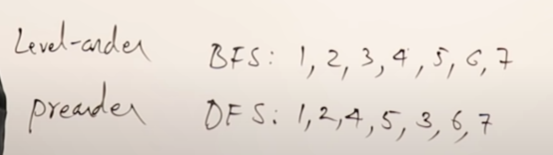 Level-order BFS: 1, 2, 3, 4, 5, 6, 7
preorder DFS: 1, 2, 4, 5, 3, 6, 7